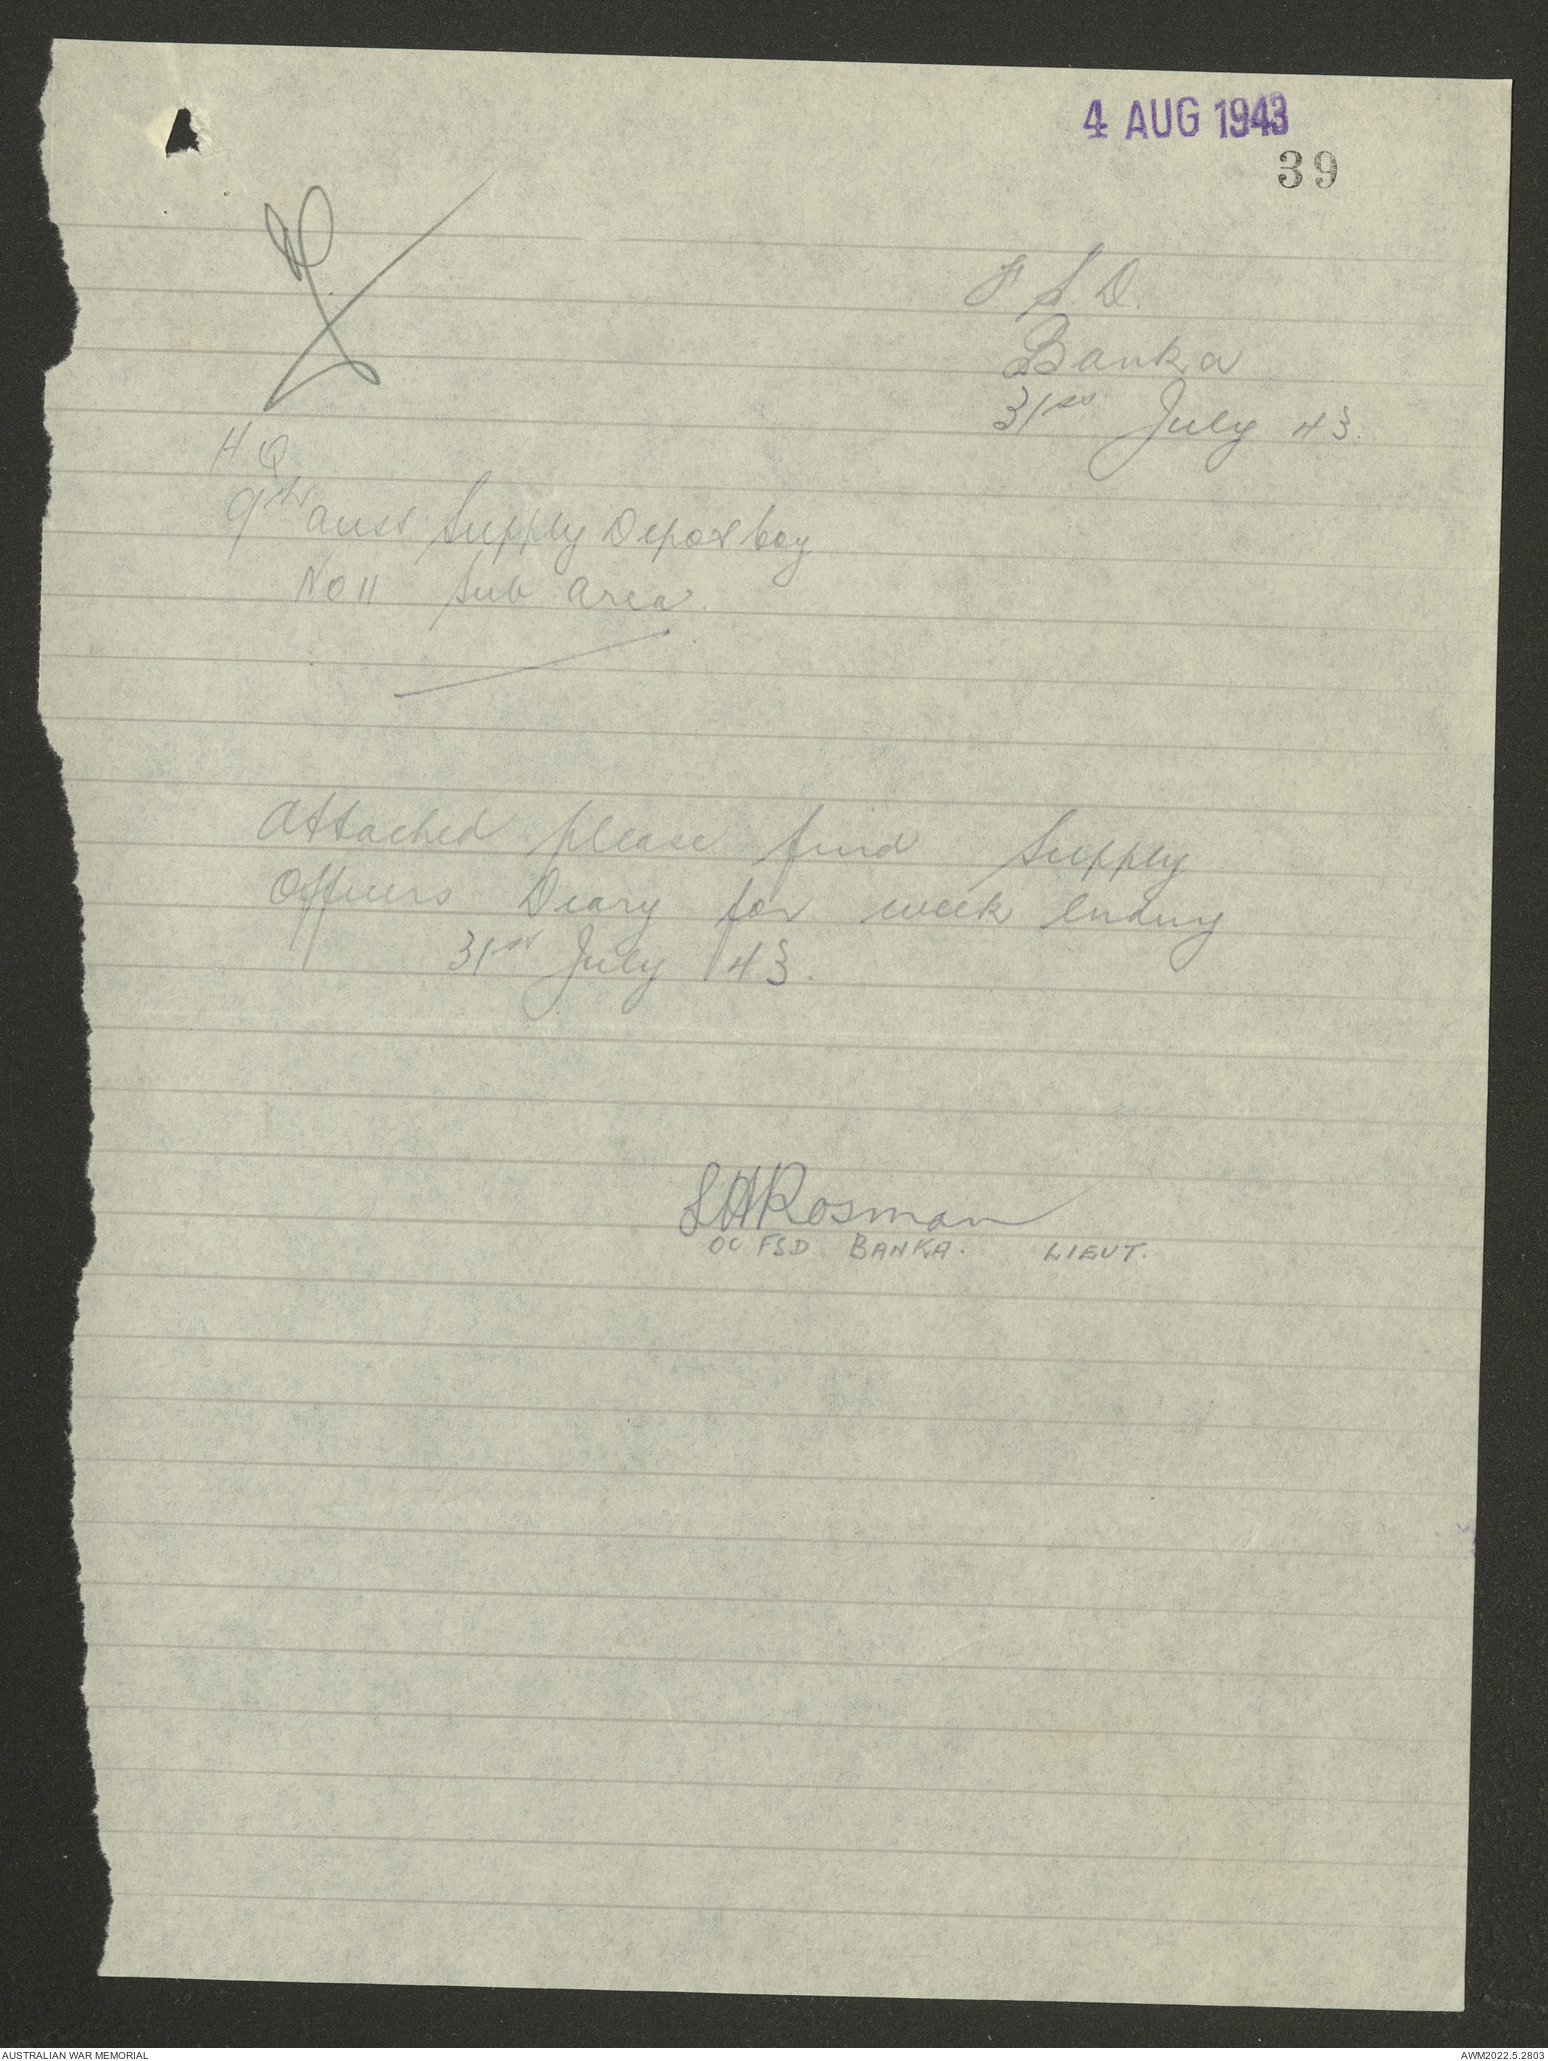 4 AUG 1943
39
F S D.
Banka
31st July 43.
H Q
9th Aust Supply Depot Coy
No 11 Sub Area.
Attached please find Supply
Officers Diary for week ending
31st July 43.
Rosman
OC FSD BANKA. LIEUT.
AUSTRALIAN WAR MEMORIAL
AWM2022.5.2803